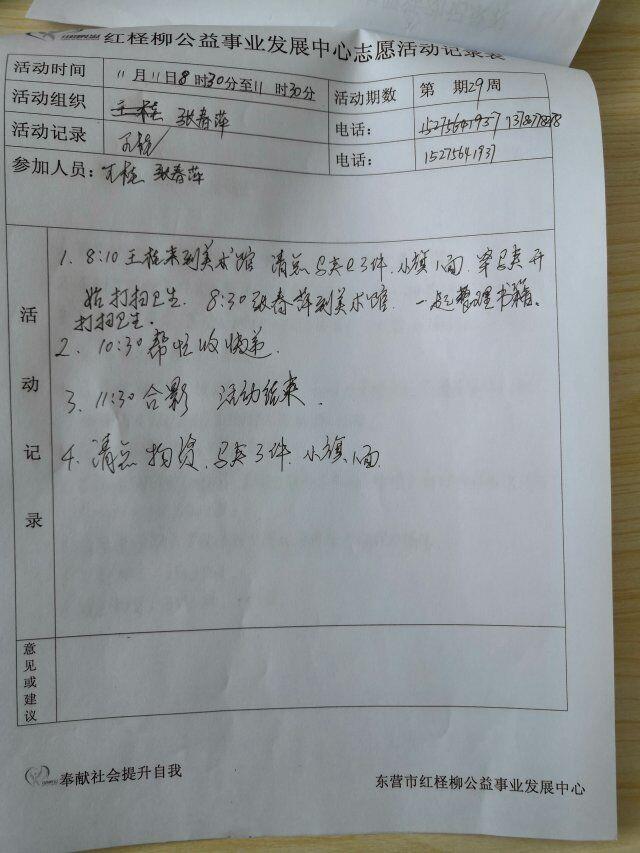 红柽柳公益事业发展中心志愿活动记录表
活动时间 11月11日8时30分至11时30分 活动期数 第 期29周
活动组织 王桂 张春萍 电话: 15275641937
活动记录 电话: 15275641937
参加人员: 张春萍
1. 8:10 来到美术馆 清点马夹 3件、小旗1面 穿马夹开
始打扫卫生. 8:30张春萍到美术馆. 一起整理书籍、
打扫卫生.
2. 10:30帮忙收快递.
3. 11:30合影 活动结束.
4. 清点物资、马夹3件、小旗1面
活动记录
意见或建议
奉献社会提升自我
东营市红柽柳公益事业发展中心